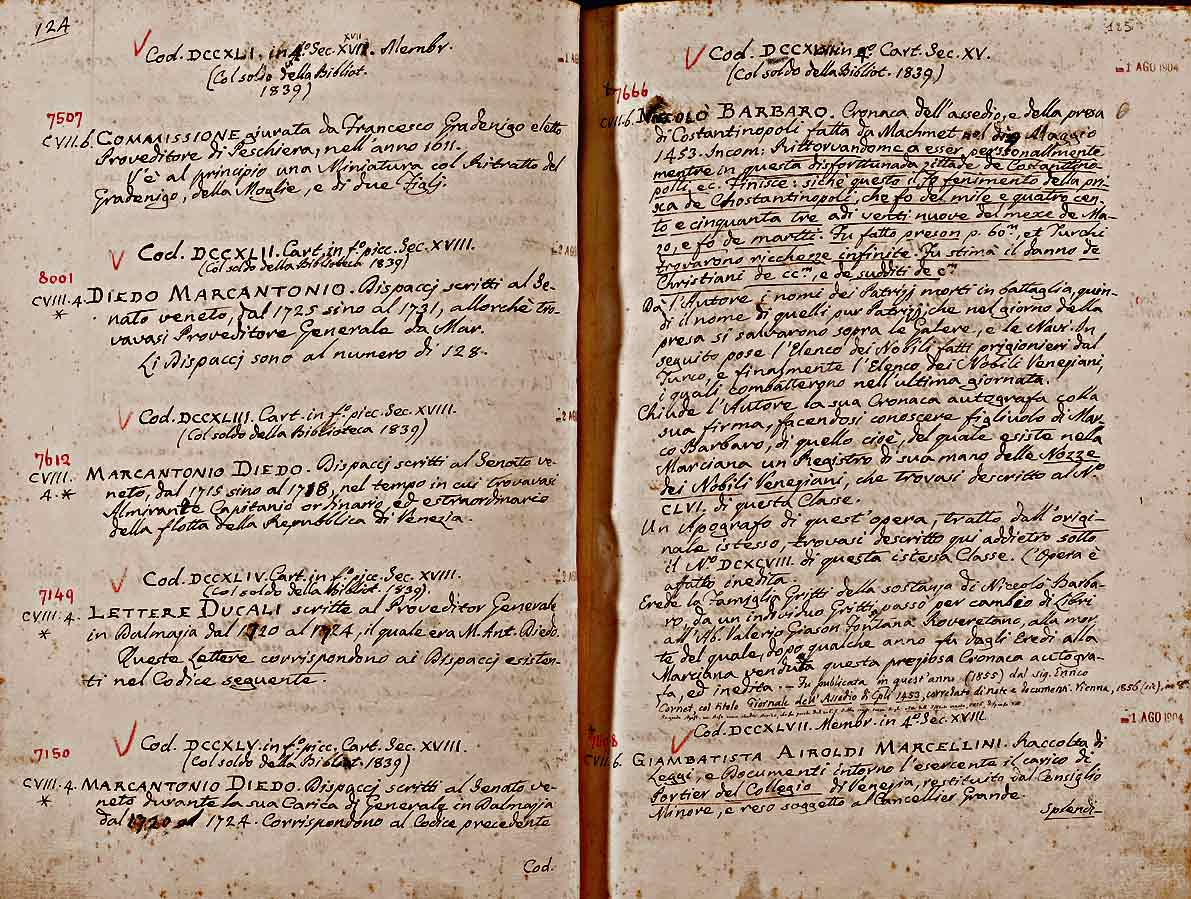 124
Cod. DCCXLI. in 4.º Sec. XVII. Membr.
XVII
(Col soldo della Bibliot.
1839)
7507
CVII.6. COMMISSIONE giurata da Francesco Gradenigo eletto
Proveditore di Peschiera, nell'anno 1611.
V'è al principio una Miniatura col Ritratto del
Gradenigo, della Moglie, e di due Figlj.
Cod. DCCXLII. Cart. in f.º picc. Sec. XVIII.
(Col soldo della Biblioteca 1839)
8001
CVIII.4. DIEDO MARCANTONIO. Dispacci scritti al Se-
* nato veneto, dal 1725 sino al 1731, allorchè tro-
vavasi Proveditore Generale da Mar.
Li Dispacci sono al numero di 128.
Cod. DCCXLIII. Cart. in f.º picc. Sec. XVIII.
(Col soldo della Biblioteca 1839)
7612
CVIII. MARCANTONIO DIEDO. Dispacci scritti al Senato ve-
4.* neto, dal 1715 sino al 1718, nel tempo in cui trovavasi
Almirante Capitanio ordinario, ed estraordinario
della flotta della Repubblica di Venezia.
Cod. DCCXLIV. Cart. in f.º picc. Sec. XVIII.
(Col soldo della Bibliot. 1839).
7149
CVIII.4. LETTERE DUCALI scritte al Proveditor Generale
* in Dalmazia dal 1720 al 1724, il quale era M. Ant. Diedo.
Queste Lettere corrispondono ai Dispacci esisten-
ti nel Codice seguente.
Cod. DCCXLV. in f.º picc. Cart. Sec. XVIII.
(Col soldo della Bibliot. 1839)
7150
CVIII.4. MARCANTONIO DIEDO. Dispacci scritti al Senato ve-
* neto durante la sua Carica di Generale in Dalmazia
dal 1720 al 1724. Corrispondono al Codice precedente
Cod.
125
Cod. DCCXLVI in 4.º Cart. Sec. XV.
(Col soldo della Bibliot. 1839)
1 AGO 1904
7666
CVII.6. NICCOLÒ BARBARO. Cronaca dell'assedio, e della presa
di Costantinopoli fatta da Machmet nel dì 29 Maggio
1453. Incom: Rittorvandome a esser personalmente
mentre in questa disforttunada zittade de Costantino
polli, ec. Finisce: sichè questo si fo fenimento della pri-
xa de Chostantinopoli, che fo del mile e quatro cen-
to e cinquanta tre adi venti nuove del mexe de Ma-
zo, e fo de martti. Fu fatto preson p. 60.m, et Turchi
trovarono richezze infinite. Fu stimà il danno de
Christiani de cc.m, e de sudditi de c.m
Dà l'Autore i nomi dei Patrizj morti in battaglia, quin-
di il nome di quelli pur Patrizj, che nel giorno della
presa si salvarono sopra le Galere, e le Navi. In
seguito pose l'Elenco dei Nobili fatti prigionieri dal
Turco, e finalmente l'Elenco dei Nobili Veneziani,
i quali combatterono nell'ultima giornata.
Chiude l'Autore la sua Cronaca autografa colla
sua firma, facendosi conoscere figliuolo di Mar-
co Barbaro, di quello cioè, del quale esiste nella
Marciana un Registro di sua mano delle Nozze
dei Nobili Veneziani, che trovasi descritto al N.º
CLVI. di questa Classe.
Un Apografo di quest'opera, tratto dall'origi-
nale istesso, trovasi descritto qui addietro sotto
il N.º DCXCVIII. di questa istessa Classe. L'Opera è
affatto inedita.
Erede la Famiglia Gritti della sostanza di Niccolò Barba-
ro, da un individuo Gritti, passò per cambio di Libri
all'Ab. Valerio Giason Fontana Roveretano, alla mor
te del quale, dopo qualche anno fu dagli Eredi alla
Marciana venduta questa preziosa Cronaca autogra-
fa, ed inedita. - Fu publicata in quest'anno (1855) dal sig. Enrico
Cornet, col titolo Giornale dell'Assedio di Cpli 1453, corredato di note e documenti. Vienna, 1856 (sic), in 8º
Cod. DCCXLVII. Membr. in 4.º Sec. XVIII.
1 AGO 1904
CVII.6. GIAMBATISTA AIROLDI MARCELLINI. Raccolta di
Leggi, e Documenti intorno l'esercente il carico di
Portier del Collegio di Venezia, restituito dal Consiglio
Minore, e reso soggetto al Cancellier Grande.
Splendi-